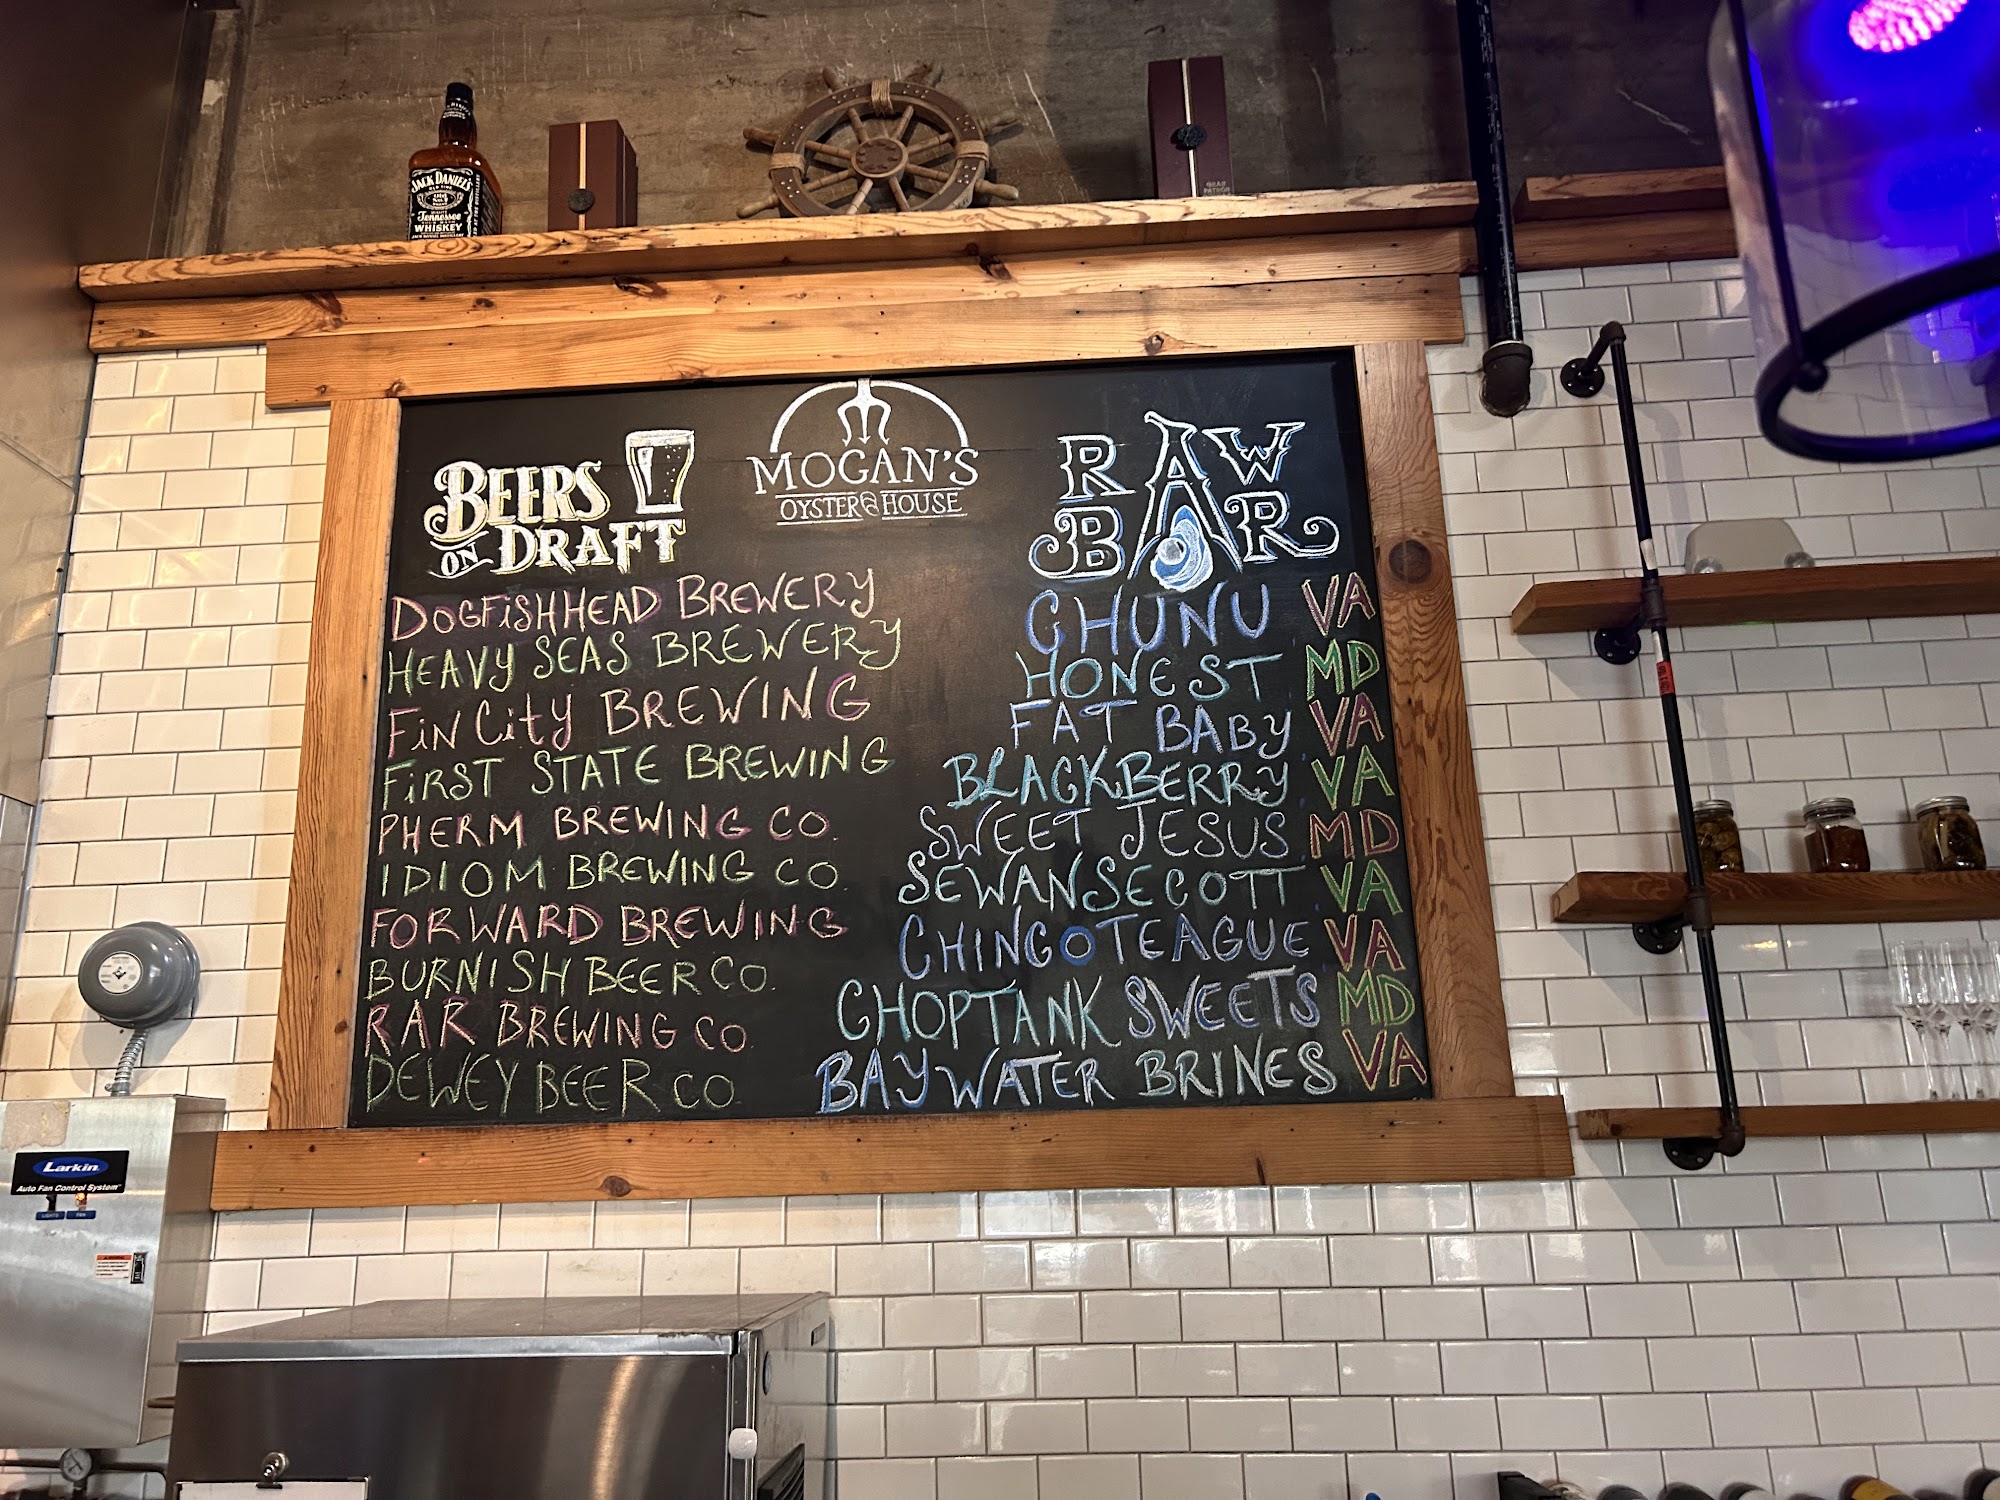 JACK DANIEL'S
OLD TIME
Tennessee
WHISKEY
GRAN
PATRON
MOGAN'S
OYSTER HOUSE
BEERS
ON DRAFT
DOGFISHHEAD BREWERY
HEAVY SEAS BREWERY
FIN CITY BREWING
FIRST STATE BREWING
PHERM BREWING CO.
IDIOM BREWING CO.
FORWARD BREWING
BURNISH BEER CO.
RAR BREWING CO.
DEWEY BEER CO.
RAW
BAR
CHUNU VA
HONEST MD
FAT BABY VA
BLACKBERRY VA
SWEET JESUS MD
SEWANSECOTT VA
CHINCOTEAGUE VA
CHOPTANK SWEETS MD
BAYWATER BRINES VA
Larkin
Auto Fan Control System
LIGHTS FAN